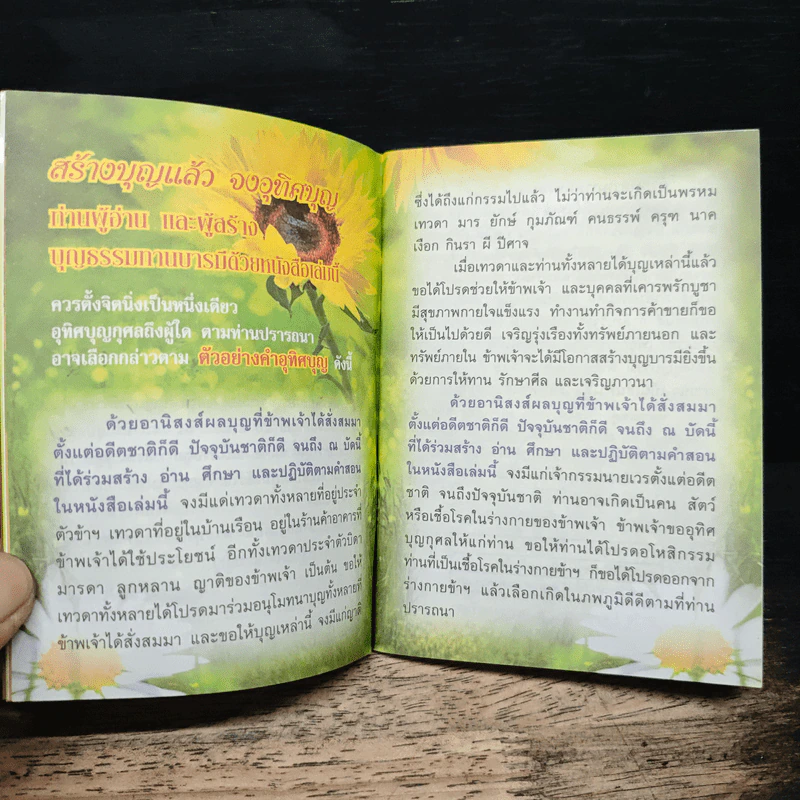 สร้างบุญแล้ว จงอุทิศบุญ
ท่านผู้อ่าน และผู้สร้าง
บุญธรรมทานบารมีด้วยหนังสือเล่มนี้
ควรตั้งจิตนิ่งเป็นหนึ่งเดียว
อุทิศบุญกุศลถึงผู้ใด ตามท่านปรารถนา
อาจเลือกกล่าวตาม ตัวอย่างคำอุทิศบุญ ดังนี้
ด้วยอานิสงส์ผลบุญที่ข้าพเจ้าได้สั่งสมมา
ตั้งแต่อดีตชาติก็ดี ปัจจุบันชาติก็ดี จนถึง ณ บัดนี้
ที่ได้ร่วมสร้าง อ่าน ศึกษา และปฏิบัติตามคำสอน
ในหนังสือเล่มนี้ จงมีแด่เทวดาทั้งหลายที่อยู่ประจำ
ตัวข้าฯ เทวดาที่อยู่ในบ้านเรือน อยู่ในร้านค้าอาคารที่
ข้าพเจ้าได้ใช้ประโยชน์ อีกทั้งเทวดาประจำตัวบิดา
มารดา ลูกหลาน ญาติของข้าพเจ้า เป็นต้น ขอให้
เทวดาทั้งหลายได้โปรดมาร่วมอนุโมทนาบุญทั้งหลายที่
ข้าพเจ้าได้สั่งสมมา และขอให้บุญเหล่านี้ จงมีแก่ญาติ
ซึ่งได้ถึงแก่กรรมไปแล้ว ไม่ว่าท่านจะเกิดเป็นพรหม
เทวดา มาร ยักษ์ กุมภัณฑ์ คนธรรพ์ ครุฑ นาค
เงือก กินรา ผี ปีศาจ
เมื่อเทวดาและท่านทั้งหลายได้บุญเหล่านี้แล้ว
ขอได้โปรดช่วยให้ข้าพเจ้า และบุคคลที่เคารพรักบูชา
มีสุขภาพกายใจแข็งแรง ทำงานทำกิจการค้าขายก็ขอ
ให้เป็นไปด้วยดี เจริญรุ่งเรืองทั้งทรัพย์ภายนอก และ
ทรัพย์ภายใน ข้าพเจ้าจะได้มีโอกาสสร้างบุญบารมียิ่งขึ้น
ด้วยการให้ทาน รักษาศีล และเจริญภาวนา
ด้วยอานิสงส์ผลบุญที่ข้าพเจ้าได้สั่งสมมา
ตั้งแต่อดีตชาติก็ดี ปัจจุบันชาติก็ดี จนถึง ณ บัดนี้
ที่ได้ร่วมสร้าง อ่าน ศึกษา และปฏิบัติตามคำสอน
ในหนังสือเล่มนี้ จงมีแก่เจ้ากรรมนายเวรตั้งแต่อดีต
ชาติ จนถึงปัจจุบันชาติ ท่านอาจเกิดเป็นคน สัตว์
หรือเชื้อโรคในร่างกายของข้าพเจ้า ข้าพเจ้าขออุทิศ
บุญกุศลให้แก่ท่าน ขอให้ท่านได้โปรดอโหสิกรรม
ท่านที่เป็นเชื้อโรคในร่างกายข้าฯ ก็ขอได้โปรดออกจาก
ร่างกายข้าฯ แล้วเลือกเกิดในภพภูมิดีดีตามที่ท่าน
ปรารถนา